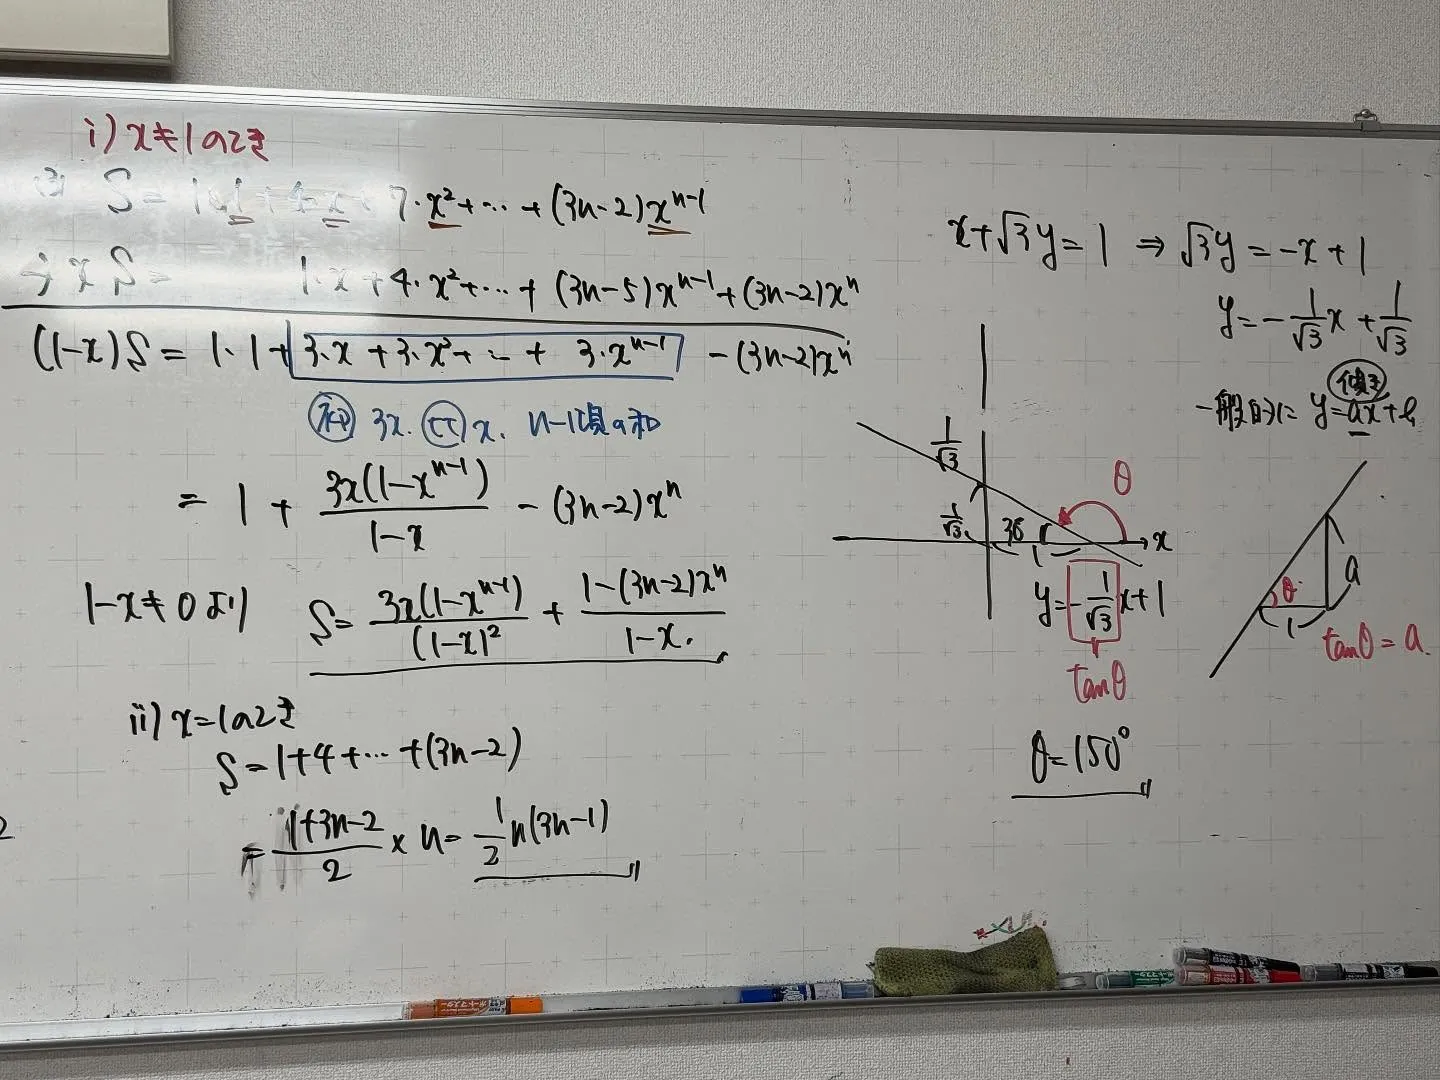 i) x≠1のとき
(3) S = 1・1 + 4・x + 7・x² + … + (3n-2)x^{n-1}
xS = 1・x + 4・x² + … + (3n-5)x^{n-1} + (3n-2)x^n
(1-x)S = 1・1 + 3・x + 3・x² + … + 3・x^{n-1} - (3n-2)x^n
初 3x. 比 x. n-1項の和
= 1 + \frac{3x(1-x^{n-1})}{1-x} - (3n-2)x^n
1-x≠0より S = \frac{3x(1-x^{n-1})}{(1-x)^2} + \frac{1-(3n-2)x^n}{1-x}.
ii) x=1のとき
S = 1+4+…+(3n-2)
= \frac{1+3n-2}{2} × n = \frac{1}{2}n(3n-1)
2
x+√3y=1 ⇒ √3y=-x+1
y=-\frac{1}{√3}x+\frac{1}{√3}
傾き
一般的に y=ax+b
\frac{1}{√3}
θ
\frac{1}{√3} 30 x
1
y=-\frac{1}{√3}x+1
tanθ
θ=150°
θ a
1
tanθ=a.